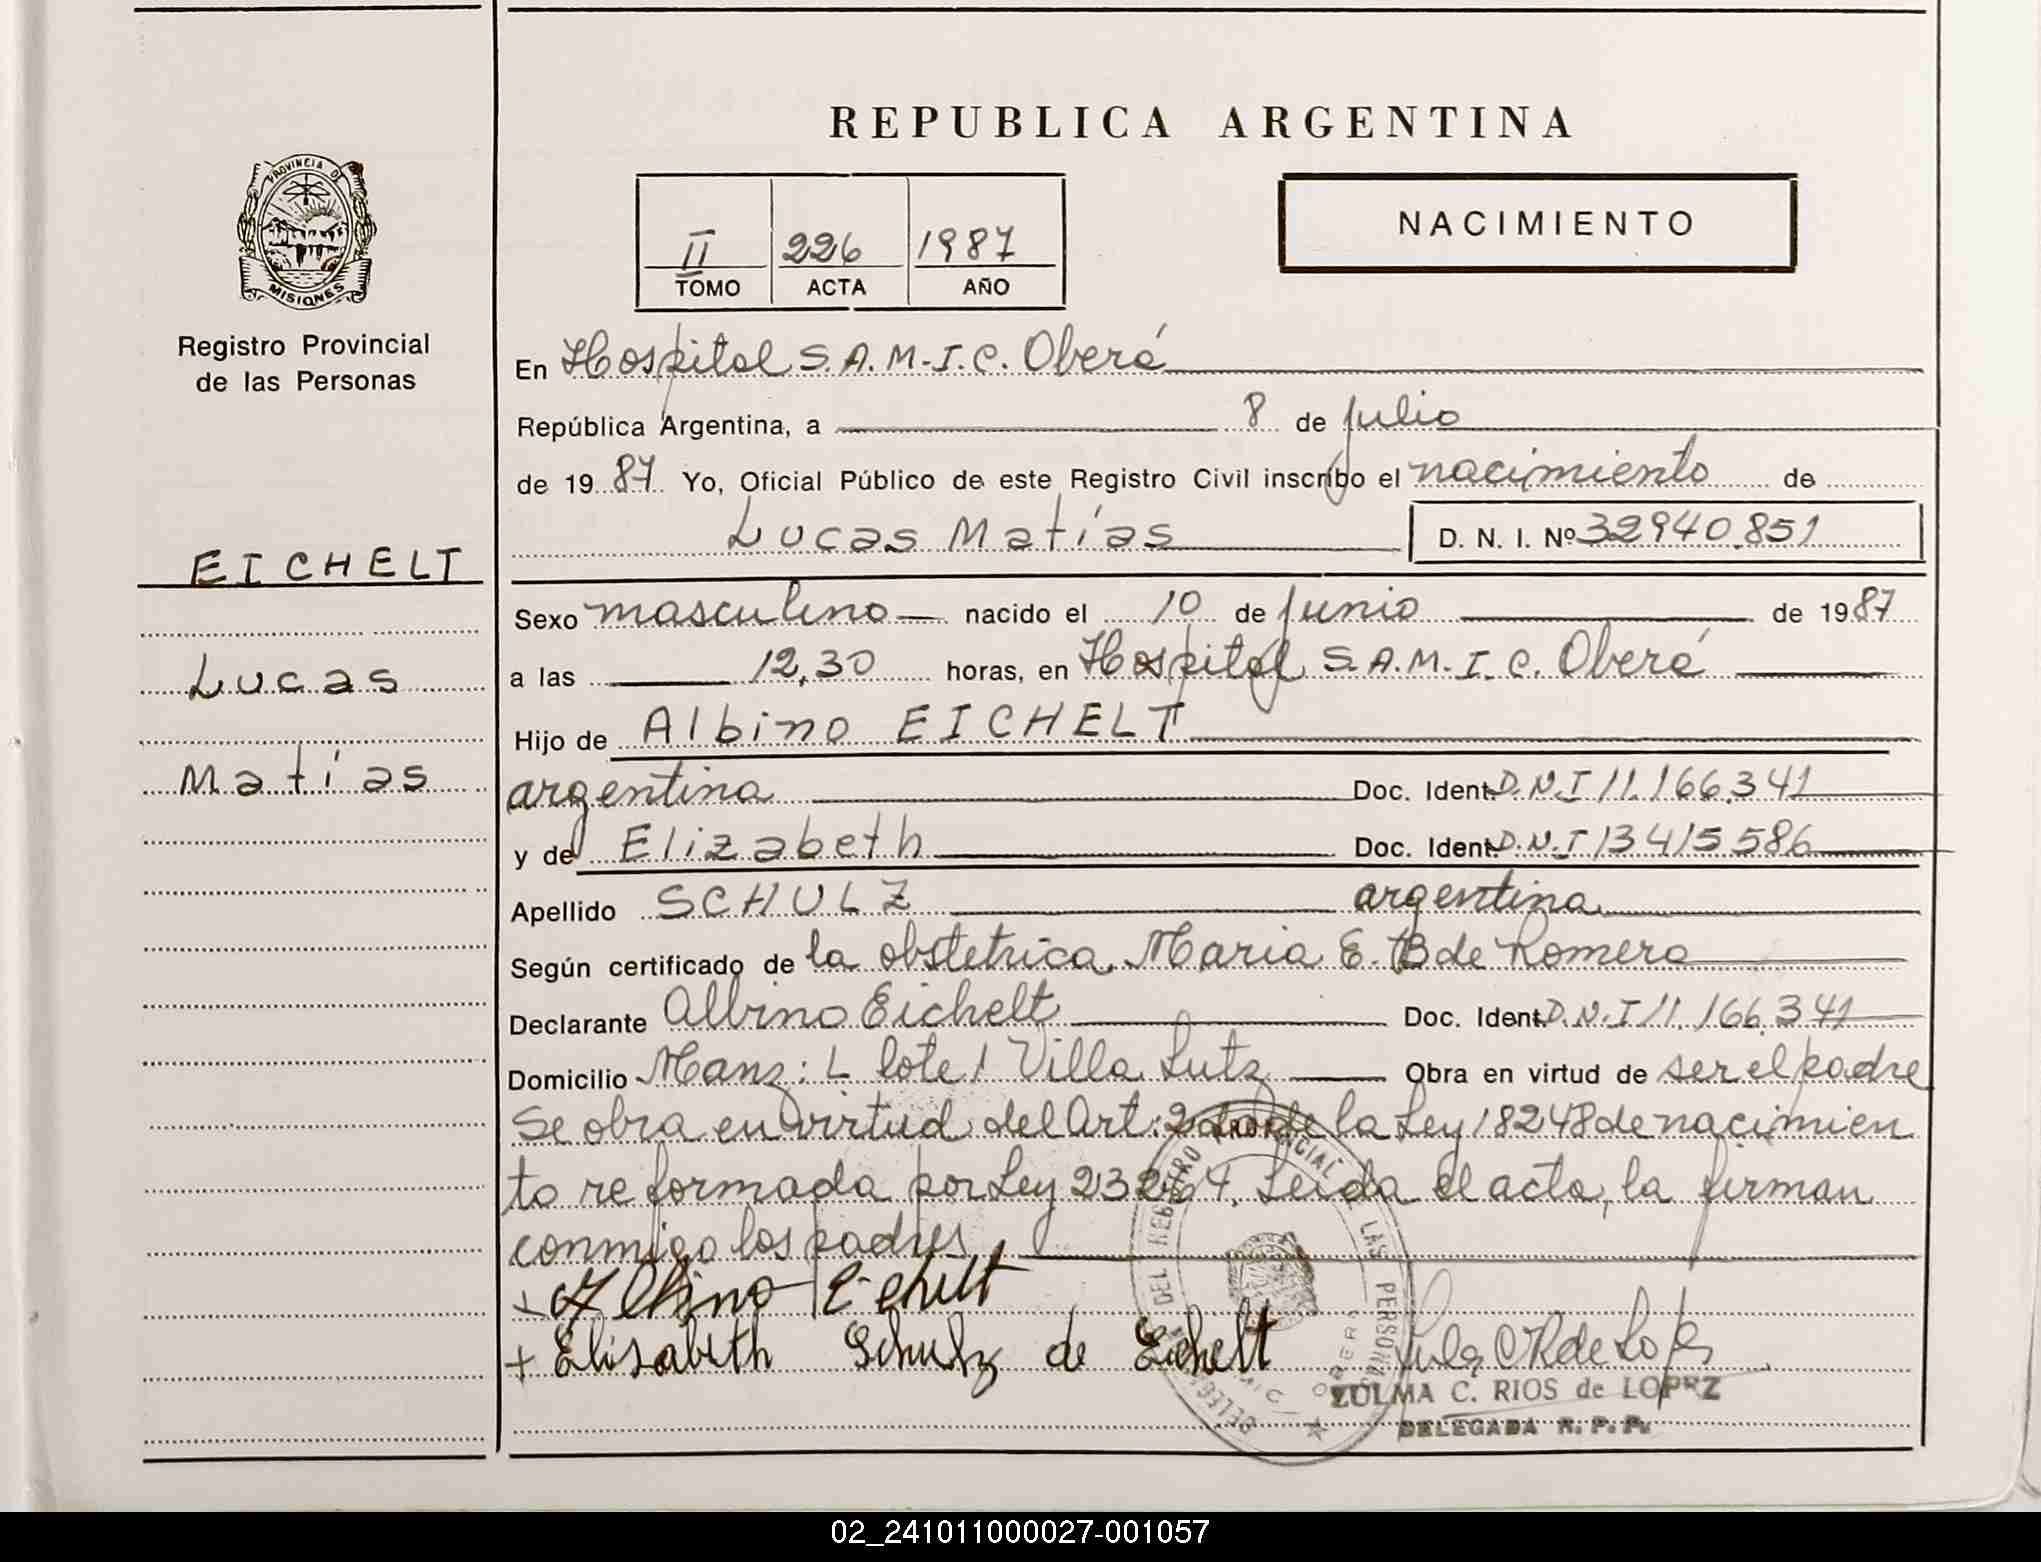 REPUBLICA ARGENTINA
PROVINCIA DE
MISIONES
Registro Provincial
de las Personas
II 226 1987
TOMO ACTA AÑO
NACIMIENTO
En Hospital S.A.M.I.C. Oberá
República Argentina, a 8 de julio
de 1987 Yo, Oficial Público de este Registro Civil inscribo el nacimiento de
Lucas Matías D. N. I. Nº 32940.851
EICHELT
Lucas
Matías
Sexo masculino nacido el 10 de junio de 1987
a las 12,30 horas, en Hospital S.A.M.I.C. Oberá
Hijo de Albino EICHELT
argentina Doc. Ident. D.N.I 11.166.341
y de Elizabeth Doc. Ident. D.N.I 13415586
Apellido SCHULZ argentina
Según certificado de la obstetrica Maria E. B de Romero
Declarante Albino Eichelt Doc. Ident. D.N.I 11.166.341
Domicilio Manz: L lote 1 Villa Lutz Obra en virtud de ser el padre
Se obra en virtud del Art: 2do de la Ley 18248 de nacimien
to reformada por Ley 23264. Leida el acta, la firman
conmigo los padres
+ Albino Eichelt
+ Elisabeth Schulz de Eichelt
ZULMA C. RIOS de LOPEZ
DELEGADA R. P. P.
02_241011000027-001057